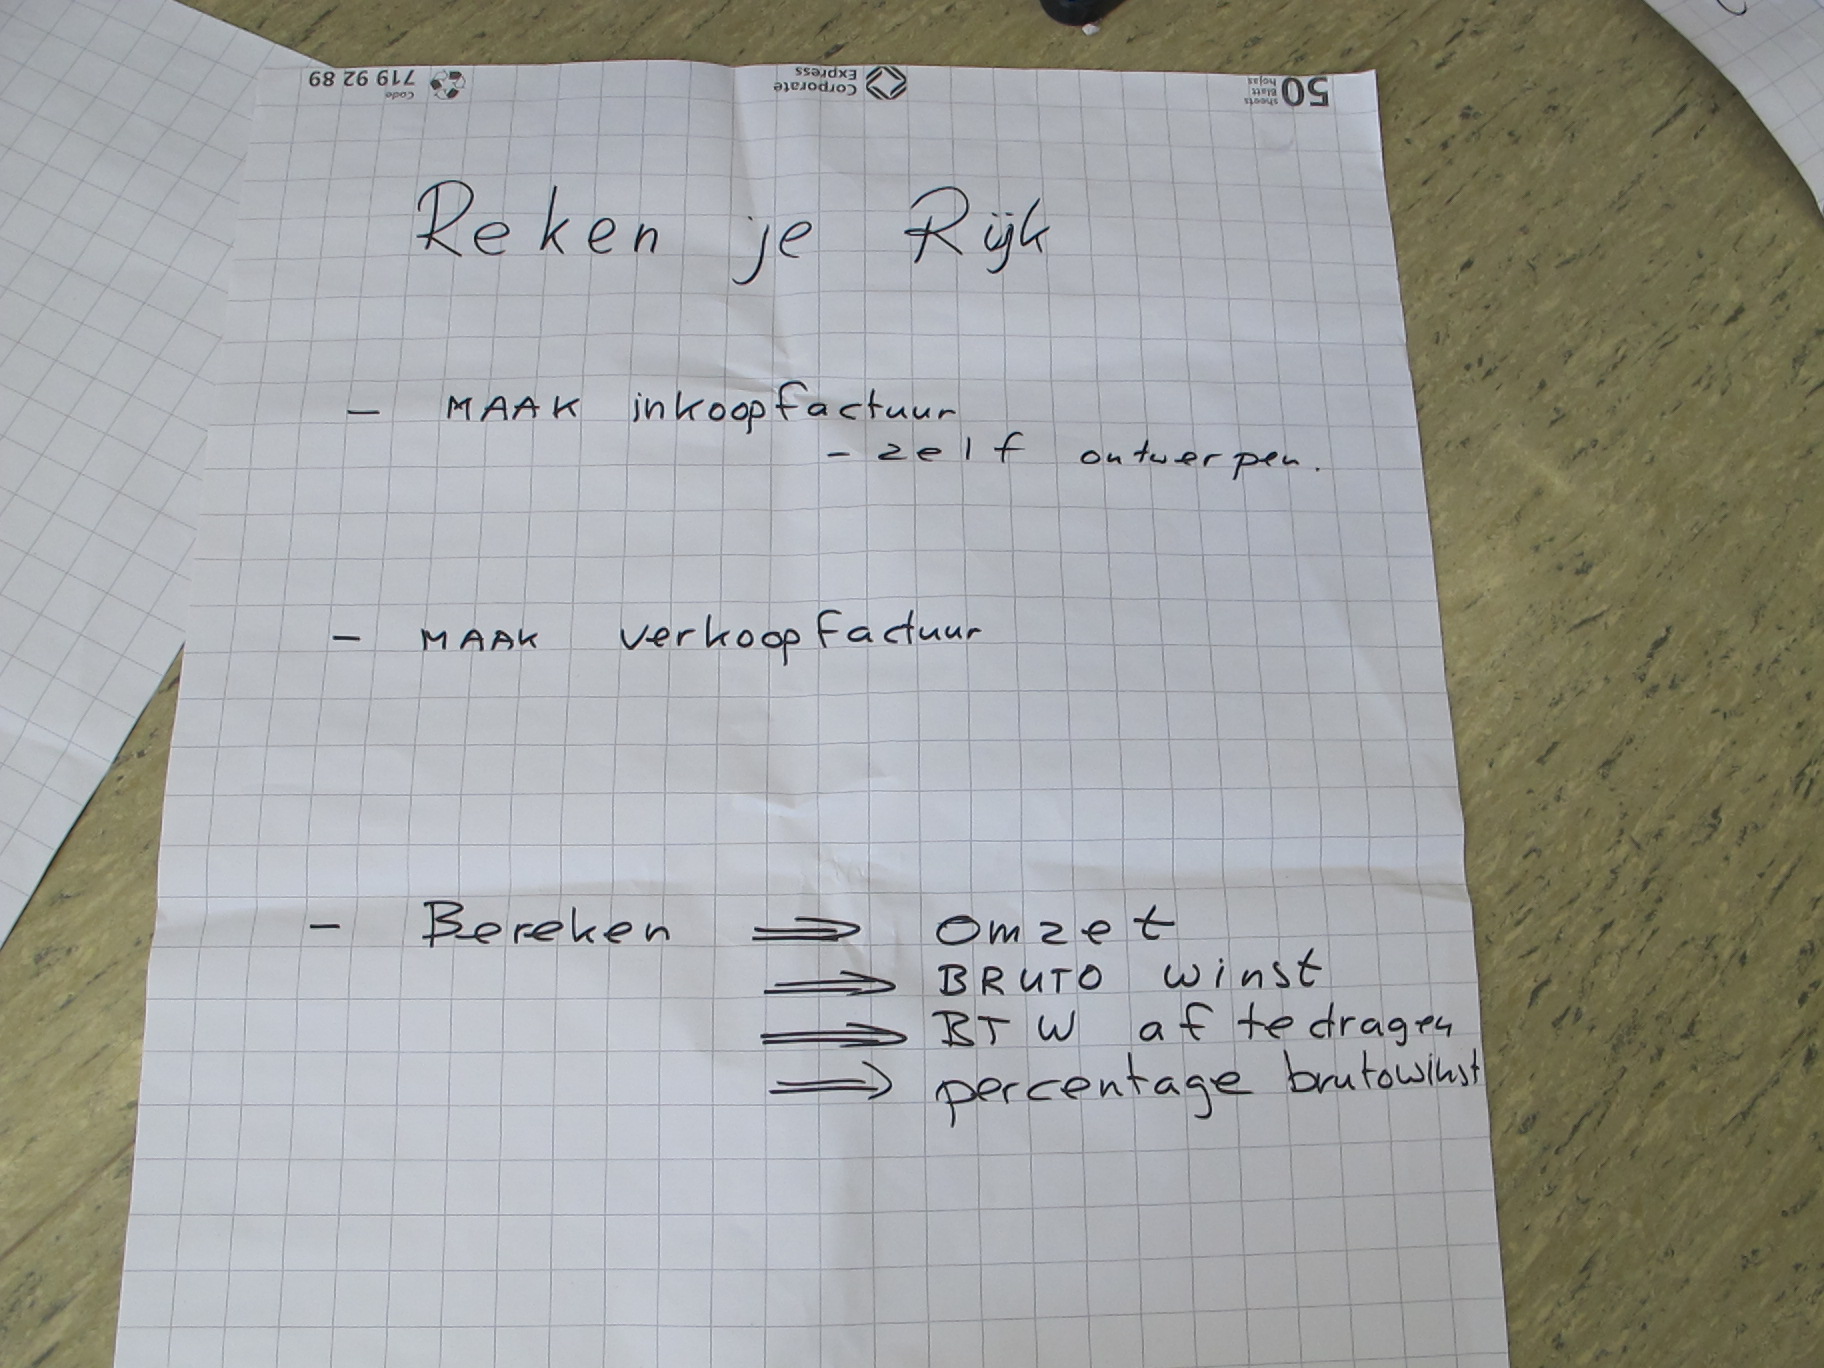 50 sheets Blatt hojas
Corporate Express
Code 719 92 89
Reken je Rijk
- MAAK inkoopfactuur
- zelf ontwerpen.
- MAAK verkoopfactuur
- Bereken ⇒ Omzet
⇒ BRUTO winst
⇒ BTW af te dragen
⇒ percentage brutowinst